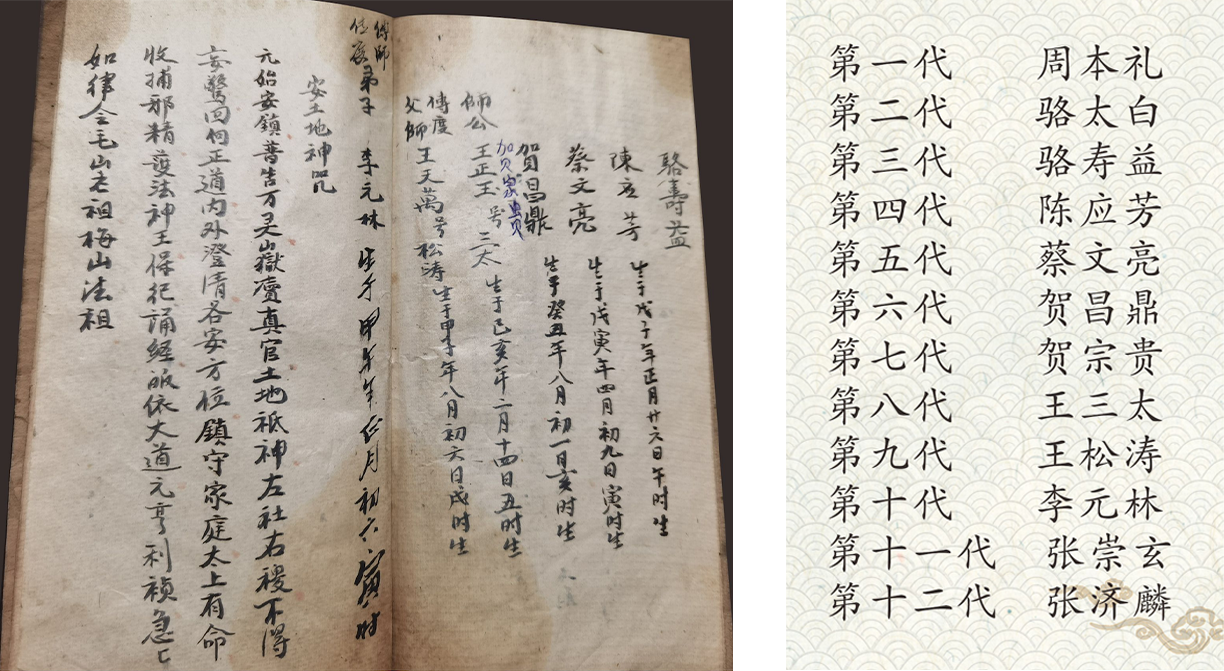 駱壽益 生于戊子年正月廿六日午时生
陳应芳 生于戊寅年四月初九日寅时生
蔡文亮
賀昌鼎 生于癸丑年八月初一日亥时生
加贺宗貴
師公 王正玉号三太 生于己亥年二月十四日丑时生
傅度
父師 王天萬号松涛 生于甲子年八月初六日戌时生
傅師
弟子 李元林 生于甲午年 月初六 寅时
安土地神咒
元始安鎮普告万灵山嶽瀆真官土地祗神左社右稷不得
妄驚回向正道内外澄清各安方位鎮守家庭太上有命
收捕邪精護法神王保祀誦経皈依大道元亨利祯急匕
如律令毛山老祖梅山法祖
第一代 周本礼
第二代 骆太白
第三代 骆寿益
第四代 陈应芳
第五代 蔡文亮
第六代 贺昌鼎
第七代 贺宗贵
第八代 王三太
第九代 王松涛
第十代 李元林
第十一代 张崇玄
第十二代 张济麟